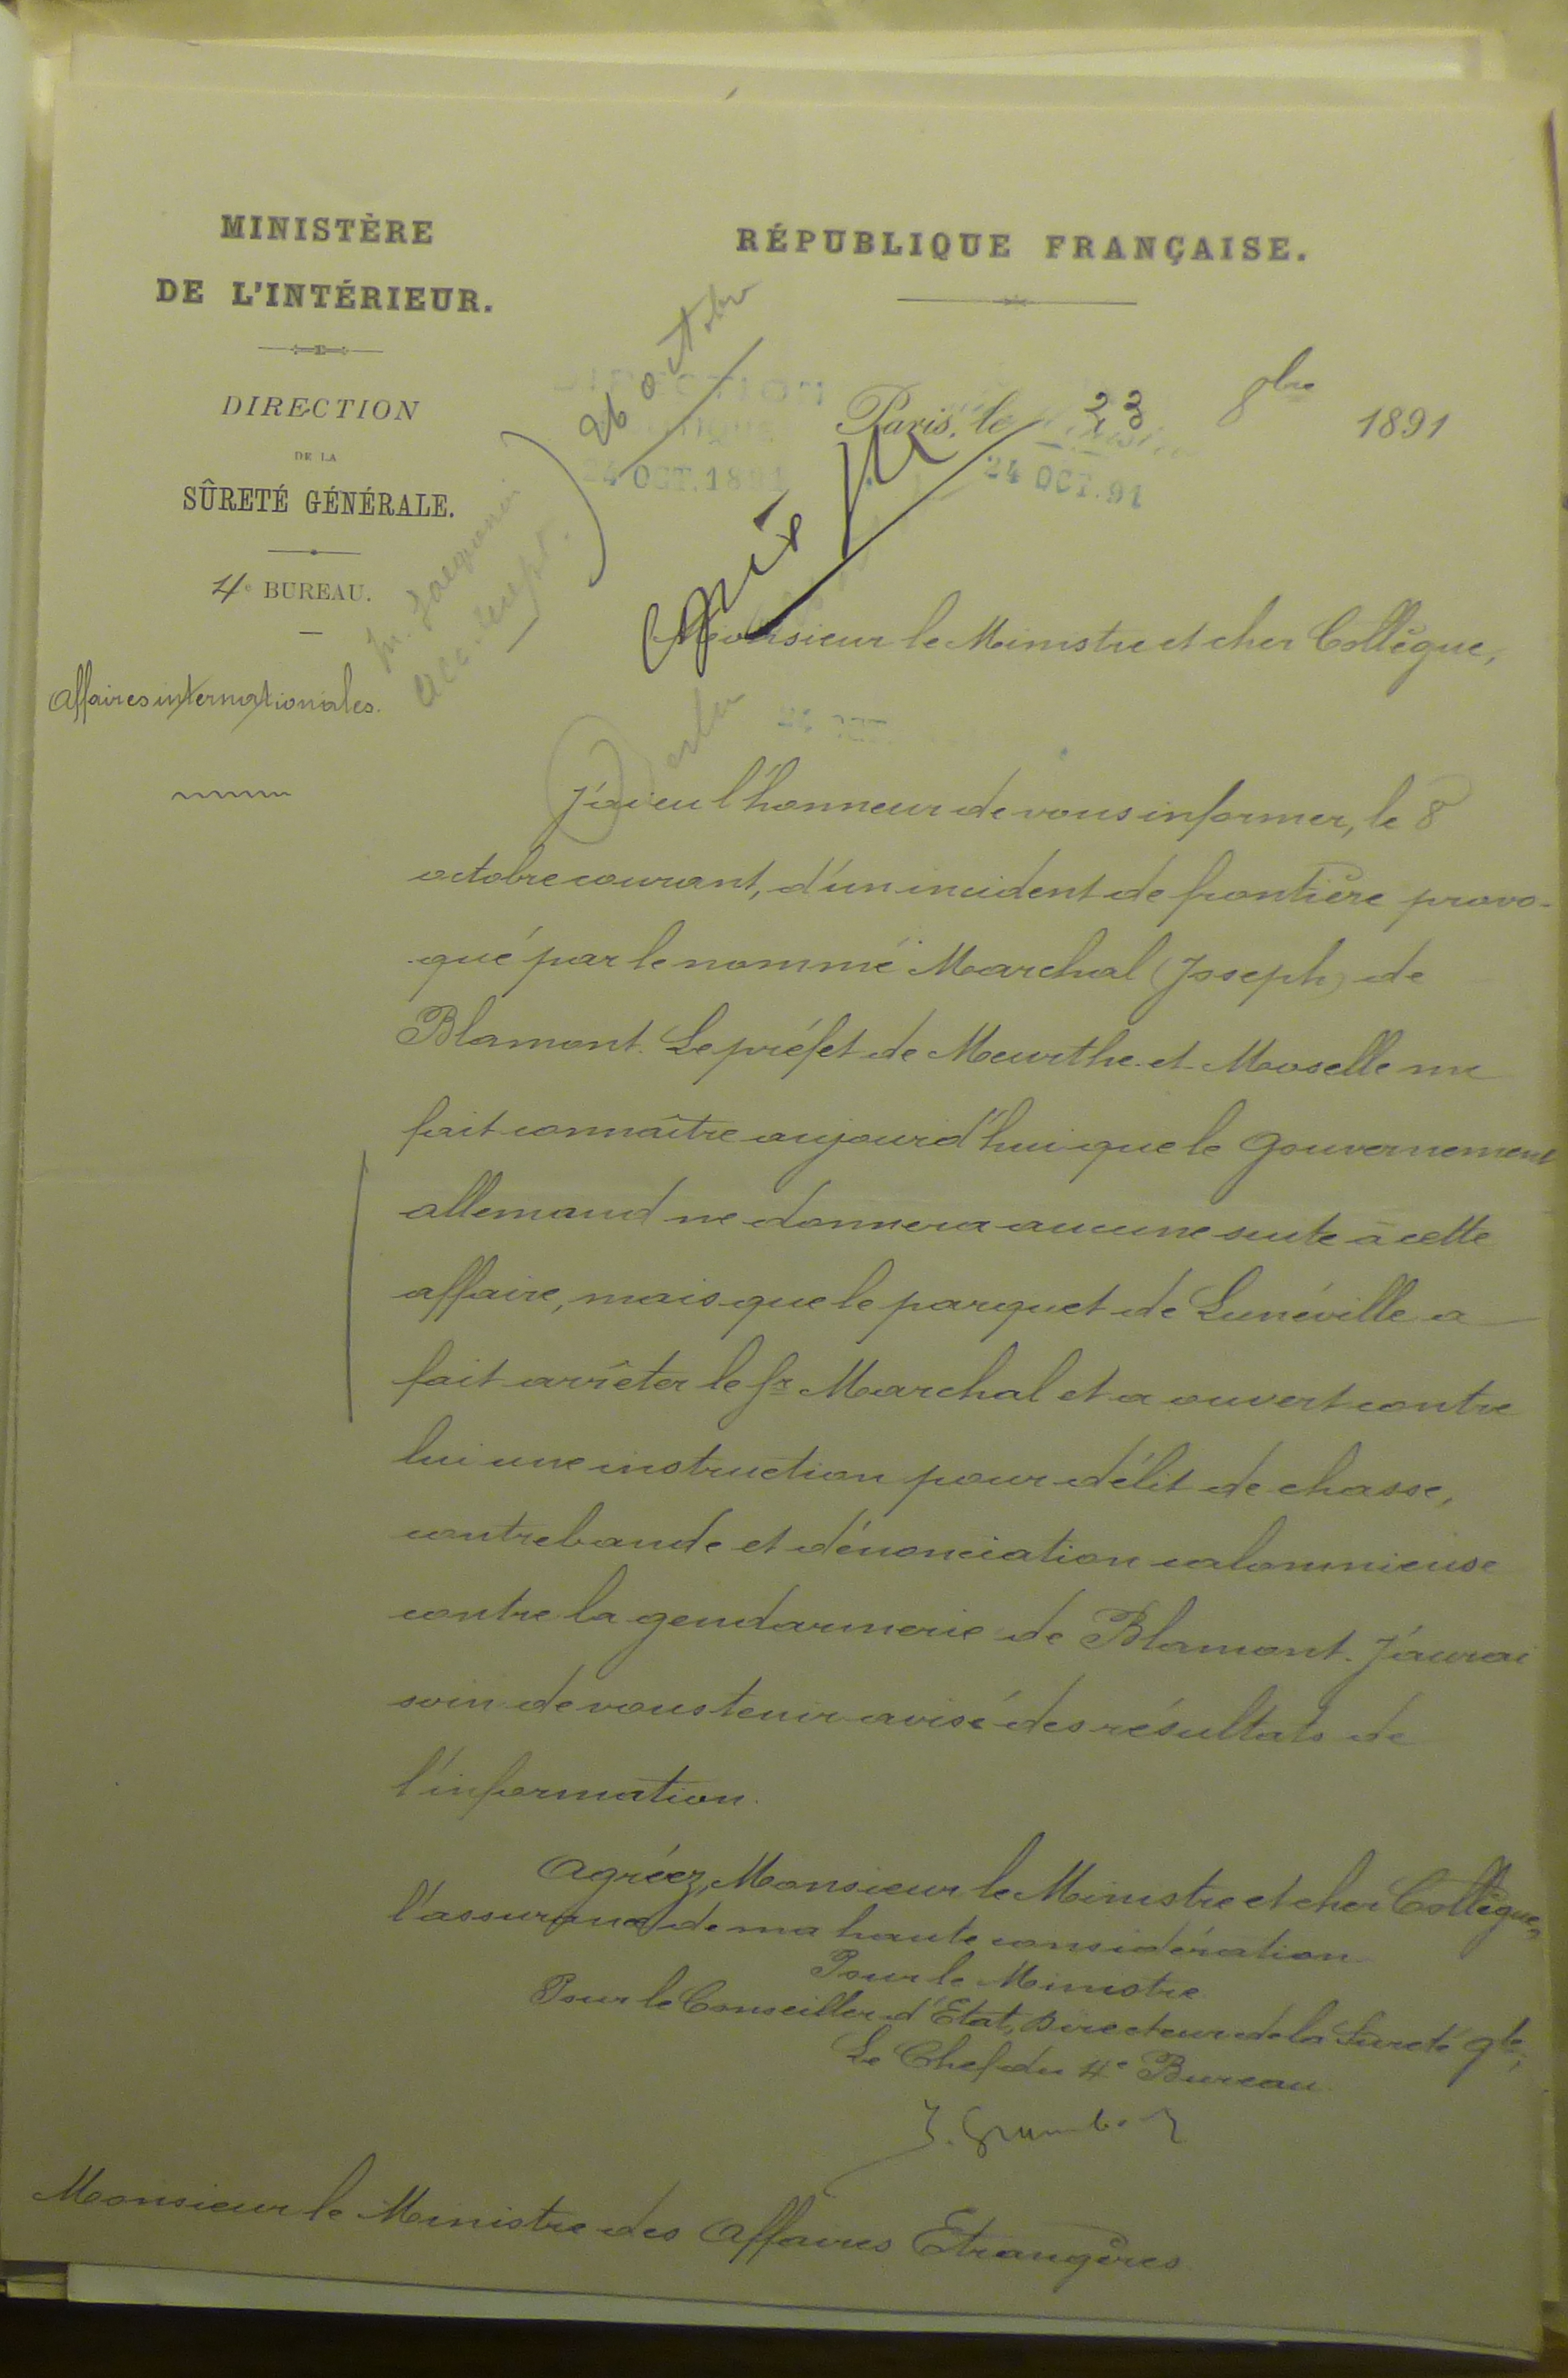 MINISTÈRE
DE L'INTÉRIEUR.
DIRECTION
DE LA
SÛRETÉ GÉNÉRALE.
4e BUREAU.
Affaires internationales.
RÉPUBLIQUE FRANÇAISE.
26 octobre
DIRECTION
24 OCT. 1891
Paris, le 23 8bre 1891
24 OCT. 91
M. Jacquin
acc. récept.
Monsieur le Ministre et cher Collègue,
J'ai eu l'honneur de vous informer, le 8
octobre courant, d'un incident de frontière provo-
qué par le nommé Marchal (Joseph) de
Blamont. Le préfet de Meurthe-et-Moselle me
fait connaître aujourd'hui que le Gouvernement
allemand ne donnera aucune suite à cette
affaire, mais que le parquet de Lunéville a
fait arrêter le Sr Marchal et a ouvert contre
lui une instruction pour délit de chasse,
contrebande et dénonciation calomnieuse
contre la gendarmerie de Blamont. J'aurai
soin de vous tenir avisé des résultats de
l'information.
Agréez, Monsieur le Ministre et cher Collègue,
l'assurance de ma haute considération
Pour le Ministre
Pour le Conseiller d'Etat, Directeur de la Sureté gle,
Le Chef du 4e Bureau
Monsieur le Ministre des Affaires Etrangères